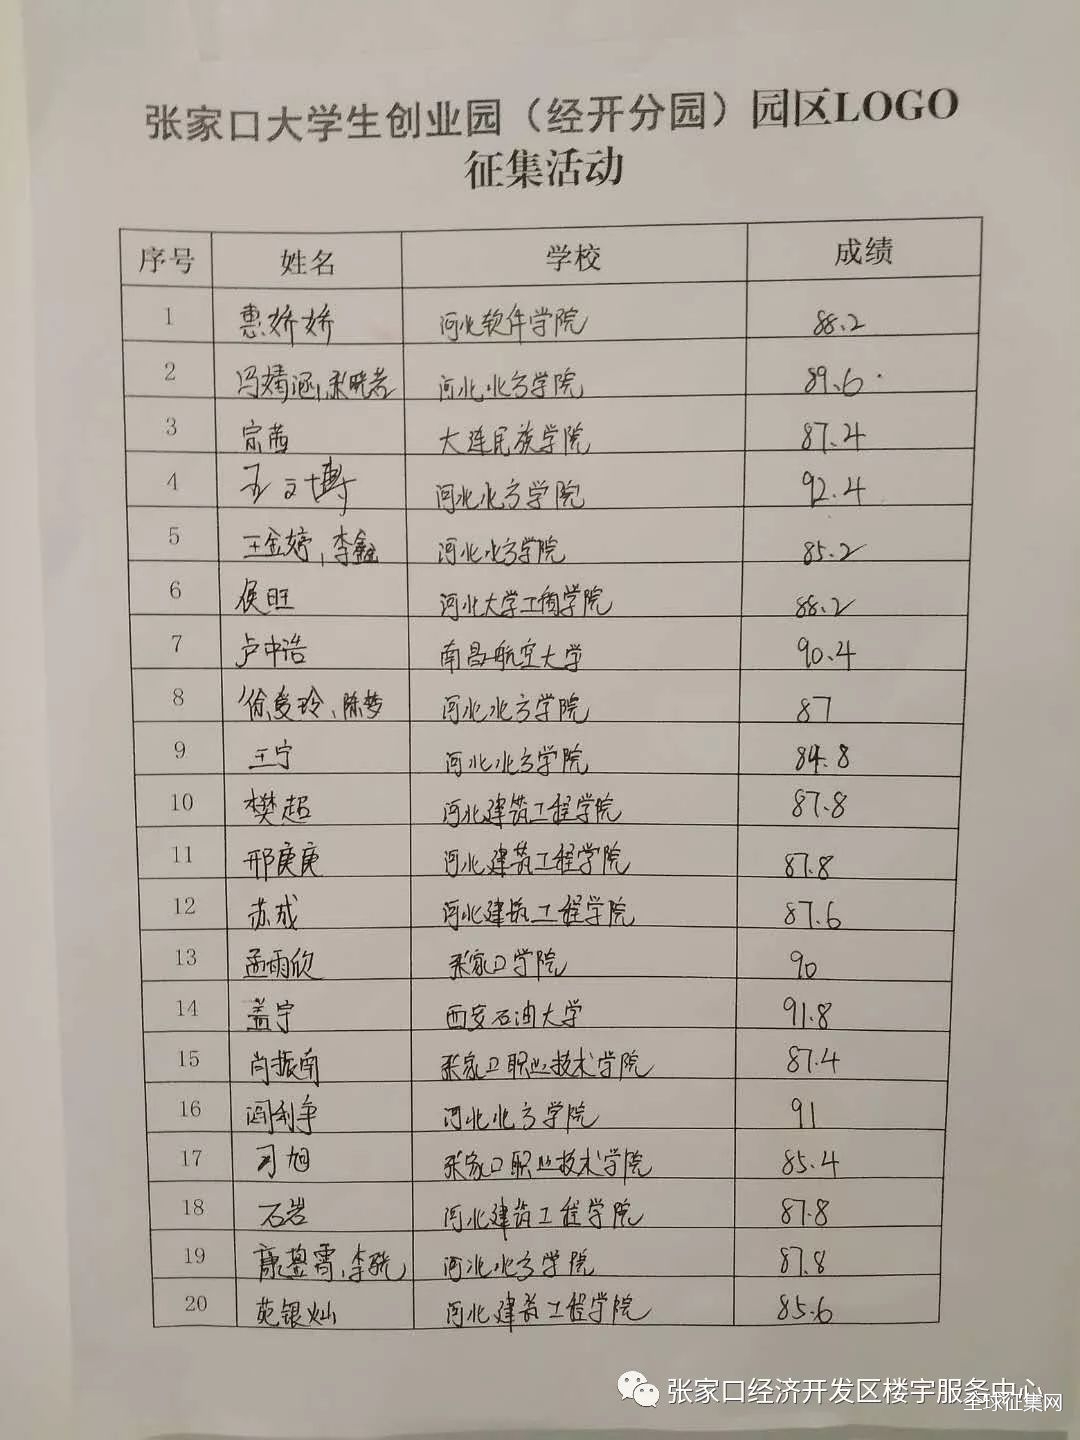 张家口大学生创业园（经开分园）园区LOGO
征集活动
序号 姓名 学校 成绩
1 惠娇娇 河北软件学院 88.2
2 冯婧涵,张晓芸 河北北方学院 89.6
3 宗茜 大连民族学院 87.4
4 文博 河北北方学院 92.4
5 王金婷,李鑫 河北北方学院 85.2
6 侯旺 河北大学工商学院 88.2
7 卢中浩 南昌航空大学 90.4
8 徐爱玲、陈梦 河北北方学院 87
9 王宁 河北北方学院 84.8
10 樊超 河北建筑工程学院 87.8
11 邢庚庚 河北建筑工程学院 87.8
12 苏成 河北建筑工程学院 87.6
13 孟雨欣 张家口学院 90
14 盖宁 西安石油大学 91.8
15 肖振南 张家口职业技术学院 87.4
16 阎利争 河北北方学院 91
17 司旭 张家口职业技术学院 85.4
18 石岩 河北建筑工程学院 87.8
19 康霄、李骁 河北北方学院 87.8
20 苑银灿 河北建筑工程学院 85.6
张家口经济开发区楼宇服务中心
全球征集网